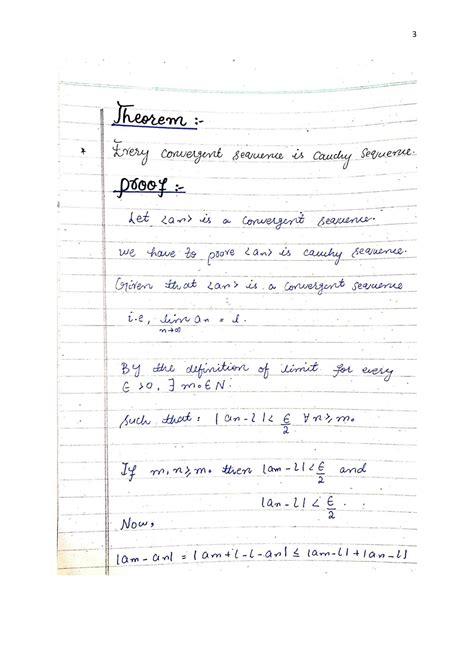 3
Theorem :-
* Every convergent sequence is cauchy sequence.
proof :-
Let <an> is a convergent sequence.
we have to prove <an> is cauchy sequence.
Given that <an> is a convergent sequence
i.e, lim an = l.
n→∞
By the definition of limit for every
ϵ >0, ∃ m₀ ∈ N.
such that: |an-l| < ϵ/2 ∀ n≥m₀
If m,n≥m₀ then |am-l| < ϵ/2 and
|an-l| < ϵ/2.
Now,
|am-an| = |am+l-l-an| ≤ |am-l|+|an-l|